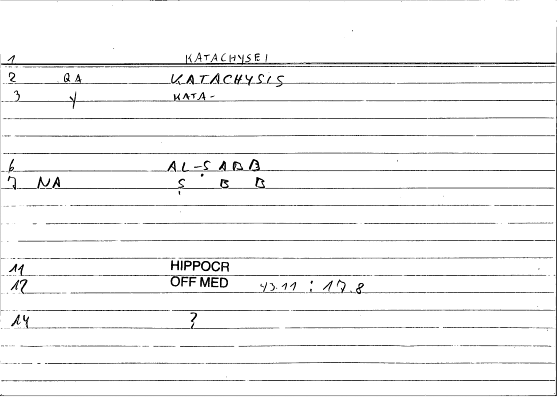 1 KATACHYSEI
2 QA KATACHYSIS
3 Y KATA-
6 AL-ṢABB
7 NA Ṣ B B
11 HIPPOCR
12 OFF MED 43.11 : 17.8
14 ?